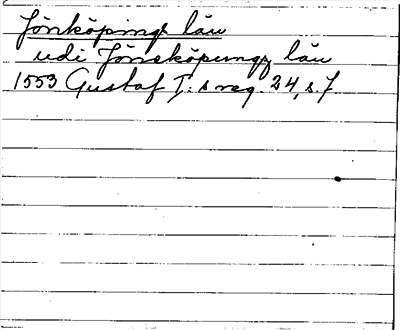 Jönköpings län
udi Jönsköpungz län
1553 Gustaf I:s reg. 24, s. 7